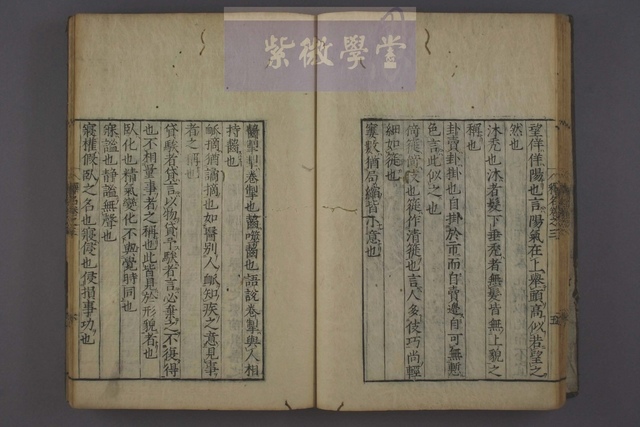 紫微學堂
望佯佯陽也言陽氣在上舉頭高似若望之
然也
沐禿也沐者髮下垂禿者無髮皆無上貌之
稱也
卦賣卦掛也自掛於市而自賣邊自可無慙
色言此似之也
倚簁倚伎也簁作清簁也言人多伎巧尚輕
細如簁也
窶數猶局縮皆小意也
齧掣掣卷掣也齧噬齧也語說卷掣與人相
持齧也
脈摘猶譎摘也如醫別人脈知疾之意見事
者之稱也
貸騃者貸言以物貸予騃者言必棄之不復得
也不相量事者之稱也此皆見於形貌者也
臥化也精氣變化不與覺時同也
寐謐也靜謐無聲也
寢權假臥之名也寢侵也侵損事功也